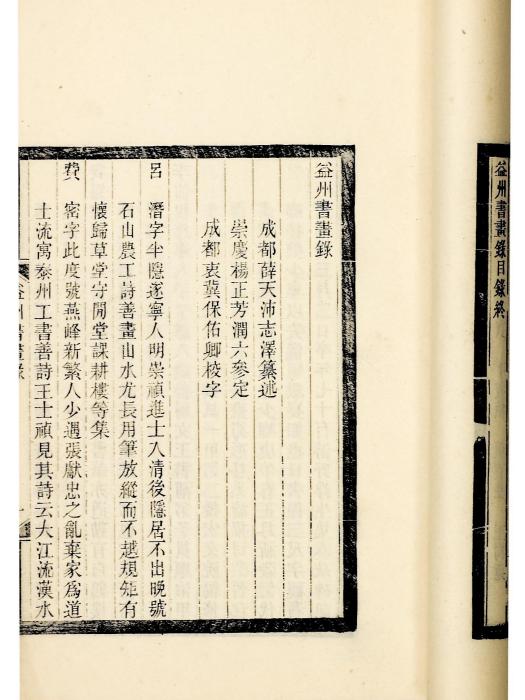 益州書畫錄目錄終
益州書畫錄
成都薛天沛志澤纂述
崇慶楊正芳潤六參定
成都衷冀保佑卿校字
呂潛字半隱遂寧人明崇禎進士入清後隱居不出晚號
石山農工詩善畫山水尤長用筆放縱而不越規矩有
懷歸草堂守閒堂課耕樓等集
費密字此度號燕峰新繁人少遇張獻忠之亂棄家爲道
士流寓泰州工書善詩王士禎見其詩云大江流漢水
益州書畫錄